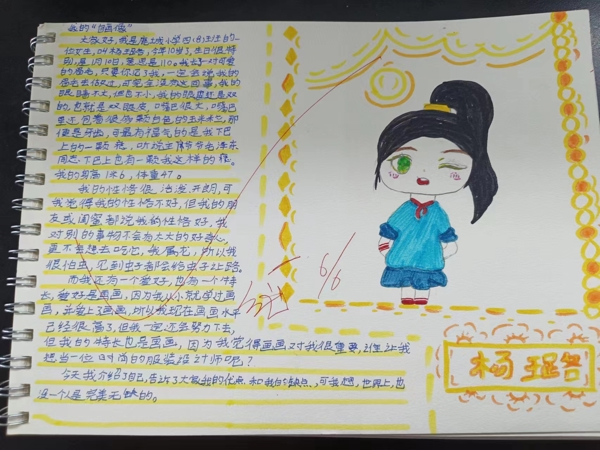 我的"自画像"
大家好,我是 城小学四(8)班的一
位女生,叫杨 ,今年10岁,生日很特
别,是1月10日,竟然是110。我长了一对可爱
的眉毛,只要你见了我,一定会说我的
眉毛去纹过,可完全没有这回事,我的
眼睛不大,但也不小,我的眼皮还是双
的,也就是双眼皮,嘴巴很大,嘴巴
里还包着很多颗白色的玉米粒,那
便是牙齿,可最为福气的是我下巴
上的一颗痣,听说主席爷爷毛泽东
同志下巴上也有一颗我这样的痣。
我的身高1米6,体重47。
我的性格很活泼开朗,可
我觉得我的性格不好,可我的朋
友或闺蜜都说我的性格好,我
对别的事物不会有太大的好奇心,
更不会想去吃它,我属龙,所以我
很怕虫,见到虫子都会给虫子让路。
而我还有一个爱好,也有一个特
长,爱好是画画,因为我从小就学过画
画,并爱上了画画,所以我现在画画水平
已经很高了,但我一定还会努力下去,
但我的特长也是画画,因为我觉得画画对我很重要,让我
想当一位时尚的服装设计师呢?
今天我介绍了自己,告诉了大家我的优点和我的缺点,可我想,世界上,也
没一个人是完美无缺的。
6/6
杨